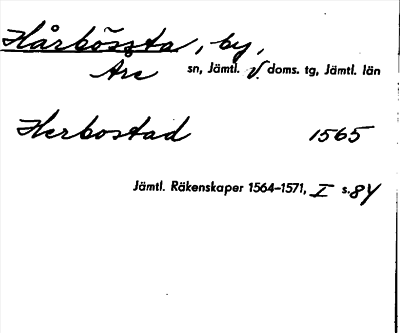 Hårbössta, by,
Åre sn, Jämtl. V. doms. tg, Jämtl. län
Herbostad 1565
Jämtl. Räkenskaper 1564-1571, I s. 84